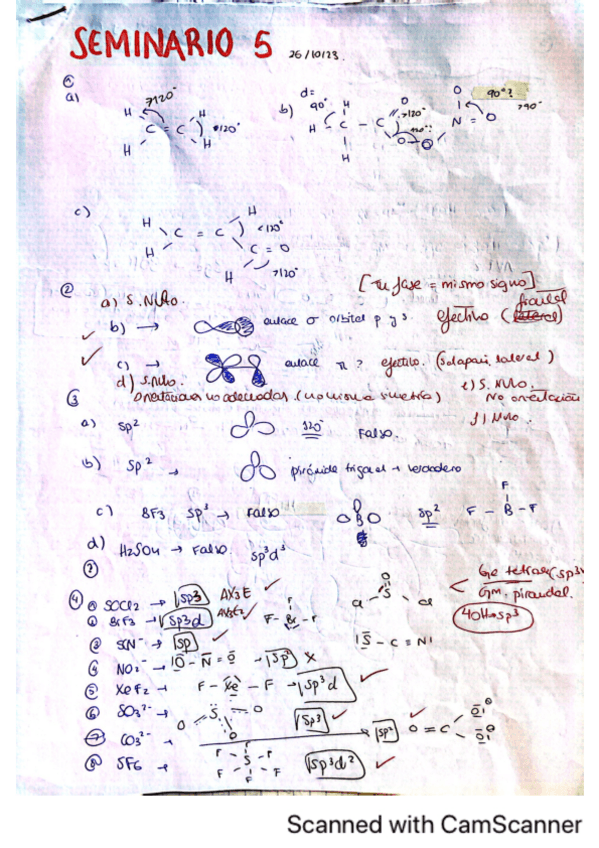 SEMINARIO 5 26/10/23
①
a) >120° H H C = C #120° H H
b) d= 90° H H - C - C O >120° 120°? O - O N = O O 90°? >90°
H
c) H H C = C <120° H C = O H >120°
② [Tu fase = mismo signo]
a) S. Nulo.
b) → enlace σ orbital p y s efectivo (frontal lateral)
c) → enlace π? efectivo. (solapam. lateral)
d) S. Nulo. e) S. Nulo.
③ Orientaciones no adecuadas. (no misma simetría) No orientación
f) Nulo.
a) sp² 120° Falso.
b) sp² → pirámide trigonal → verdadero
c) BF3 sp³ → Falso O B O sp² F - B - F F
d) H2SO4 → Falso. sp³d³
?
④ ① SOCl2 → sp3 AX3E O Cl S Cl
② BrF3 → sp3d AX3E2 F F - Br - F
③ SCN⁻ → sp |S - C = N|
④ NO2⁻ → |O - N = O → sp² X
⑤ XeF2 → F - Xe - F → sp³d
⑥ SO3²⁻ O S O O sp³
⑦ CO3²⁻ → sp² O = C O O
⑧ SF6 → F F F S F F F sp³d²
< Ge tetrae(sp3)
Gm. piramidal.
4OH=sp³
Scanned with CamScanner